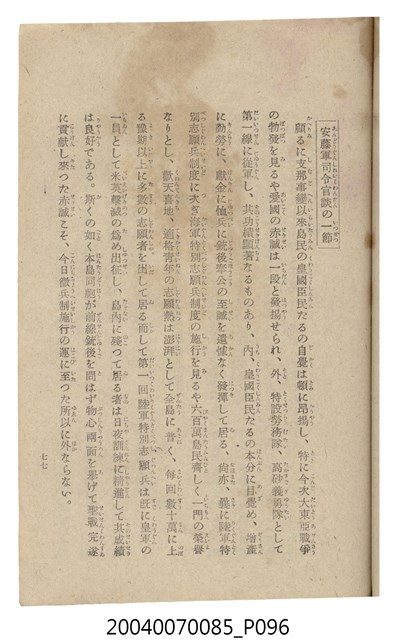 安藤軍司令官談の一節
顧るに支那事變以來島民の皇國臣民たるの自覺は頓に昂揚し、特に今次大東亞戰爭
の勃發を見るや愛國の赤誠は一段と發揚せられ、外、特設勞務隊、高砂義勇隊として
第一線に從軍し、其功績顯著なるものあり、內、皇國臣民たるの本分に目覺め、增產
に勤勞に、獻金に恤兵に銃後奉公の至誠を遺憾なく發揮して居る、尙亦、曩に陸軍特
別志願兵制度に次ぎ海軍特別志願兵制度の施行を見るや六百萬島民齊しく一門の榮譽
なりとし、歡天喜地、適格靑年の志願熱は澎湃として全島に普く、每回數十萬に上
る豫期以上に多數の志願者を出して居る而して第一回陸軍特別志願兵は旣に皇軍の
一員として米英擊滅の爲め出征し、島內に殘つて居る者は日夜訓練に精進して其成績
は良好である。斯くの如く本島同胞が前線銃後を問はず物心兩面を擧げて聖戰完遂
に貢獻し來つた赤誠こそ、今日徵兵制施行の運に至つた所以に外ならない。
七七
20040070085_P096